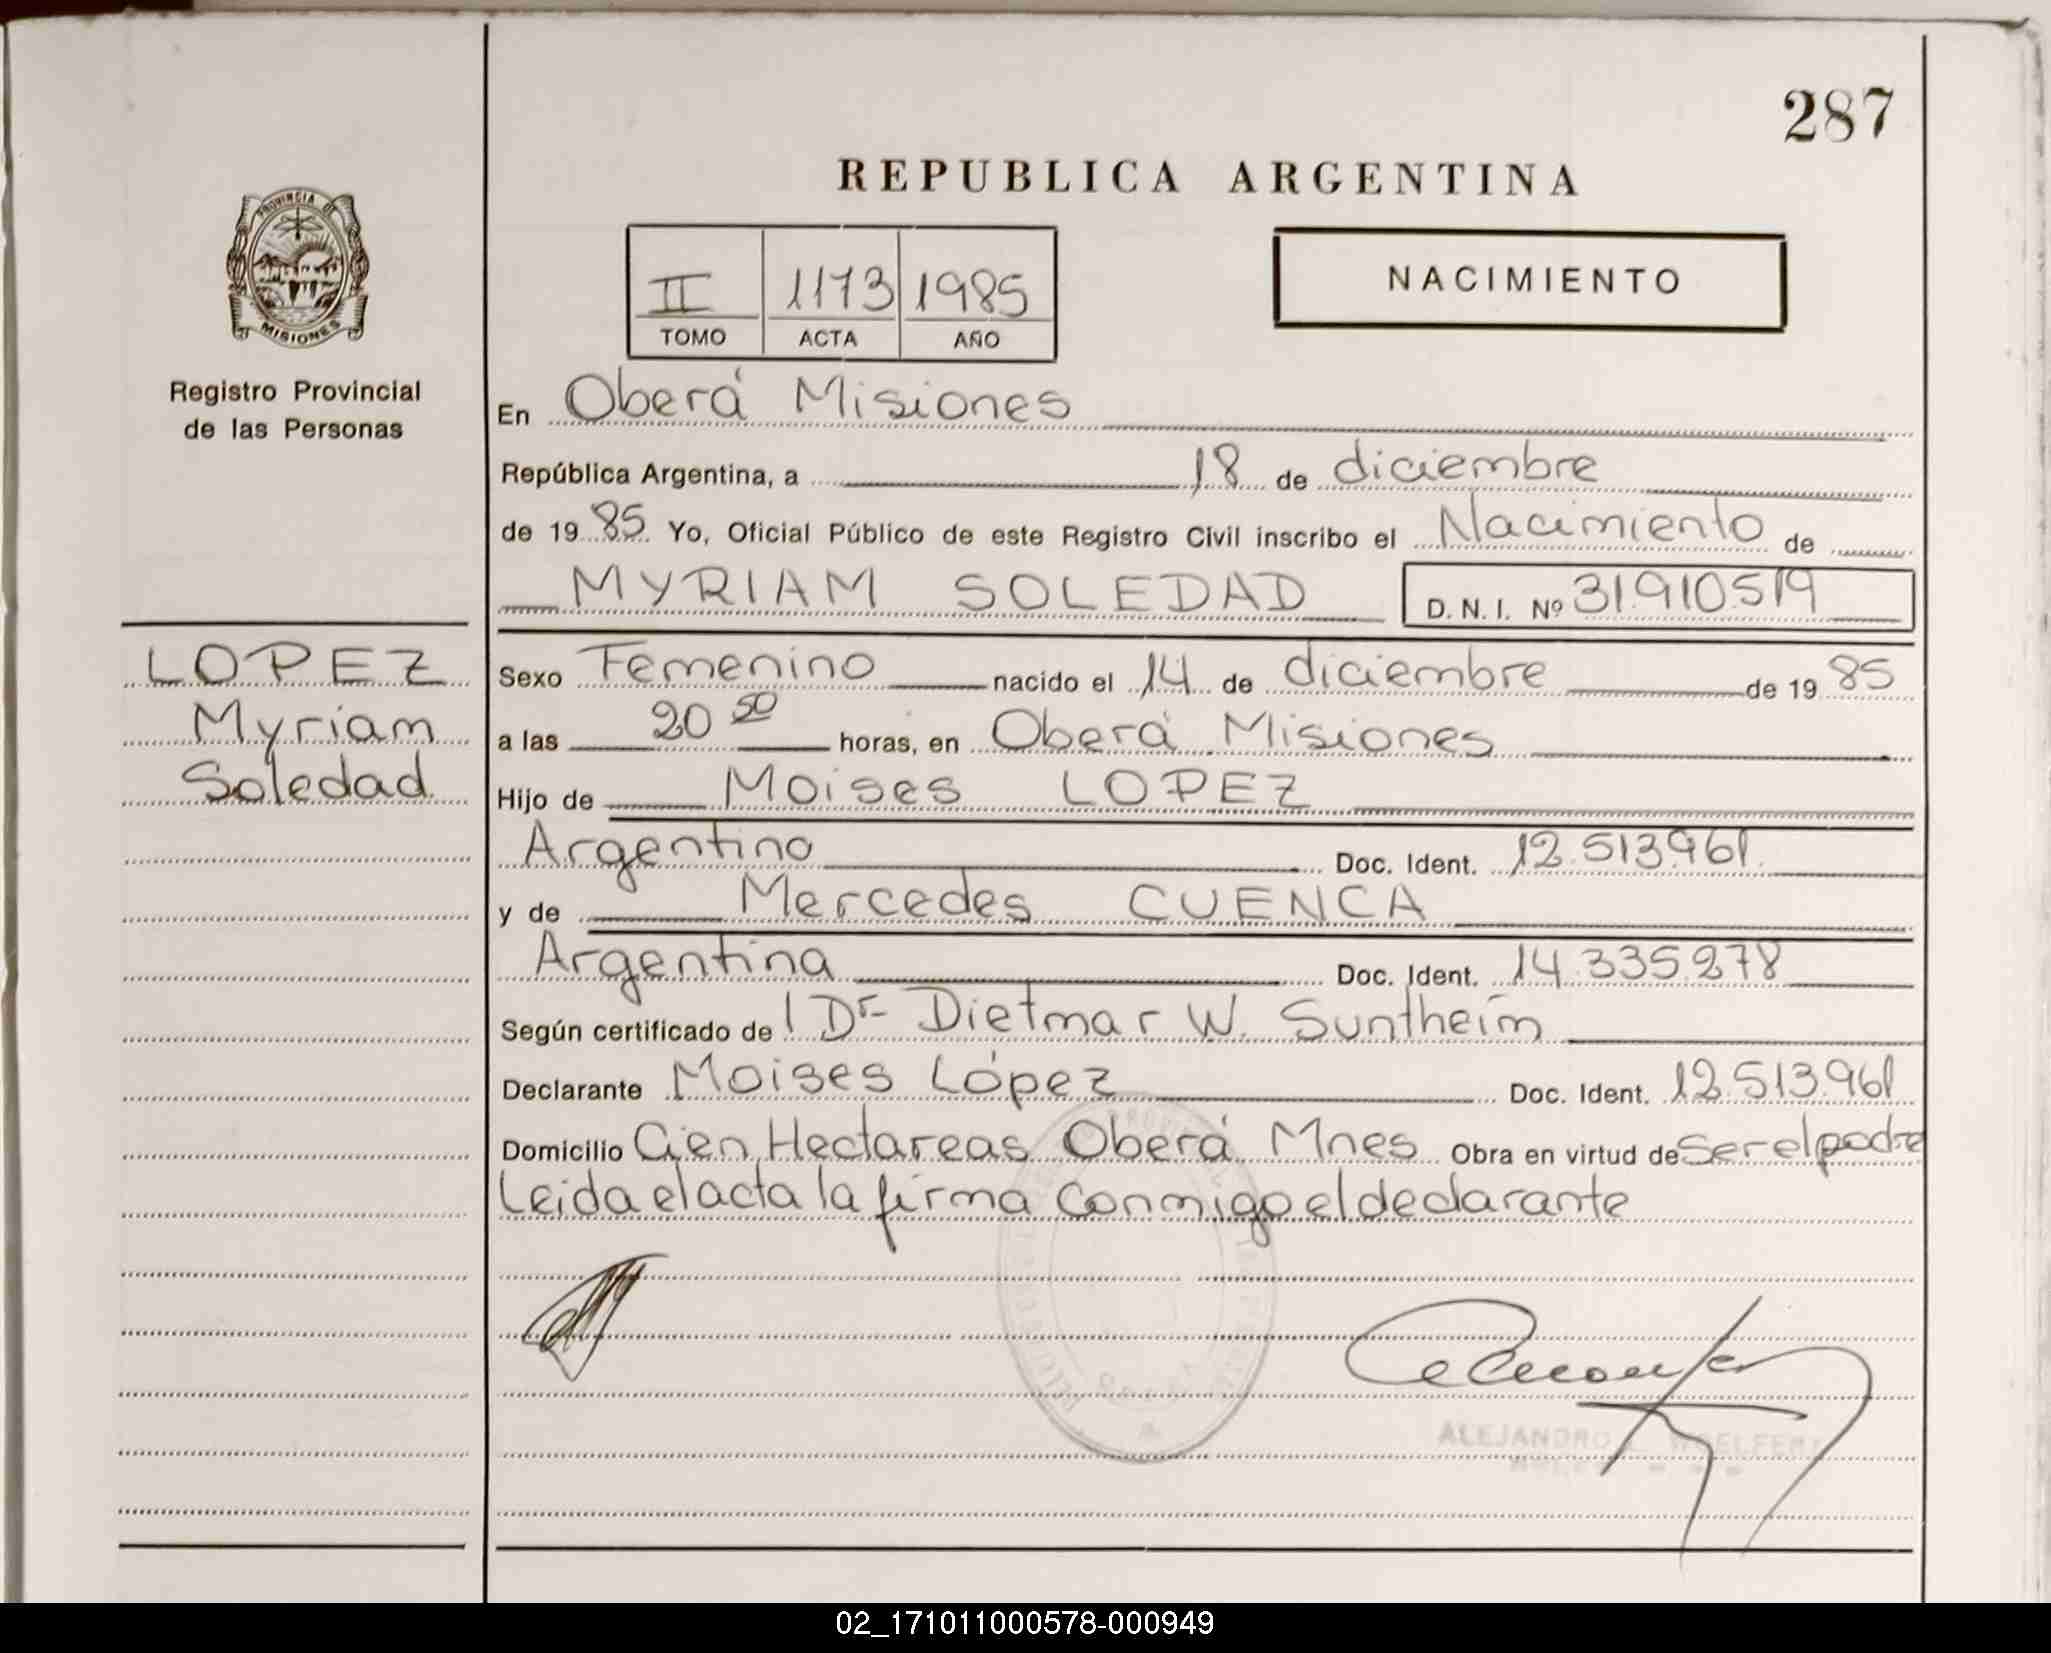 287
REPUBLICA ARGENTINA
PROVINCIA DE
MISIONES
Registro Provincial
de las Personas
II 1173 1985
TOMO ACTA AÑO
NACIMIENTO
En Oberá Misiones
República Argentina, a 18 de diciembre
de 1985 Yo, Oficial Público de este Registro Civil inscribo el Nacimiento de
MYRIAM SOLEDAD D. N. I. Nº 31.910.519
LOPEZ
Myriam
Soledad
Sexo Femenino nacido el 14 de diciembre de 1985
a las 20 50 horas, en Oberá Misiones
Hijo de Moises LOPEZ
Argentino Doc. Ident. 12.513.961
y de Mercedes CUENCA
Argentina Doc. Ident. 14.335.278
Según certificado del Dr Dietmar W. Suntheim
Declarante Moises López Doc. Ident. 12.513.961
Domicilio Cien Hectareas Oberá Mnes Obra en virtud de ser el padre
Leida el acta la firma conmigo el declarante
ALEJANDRO WOELFERT
02_171011000578-000949